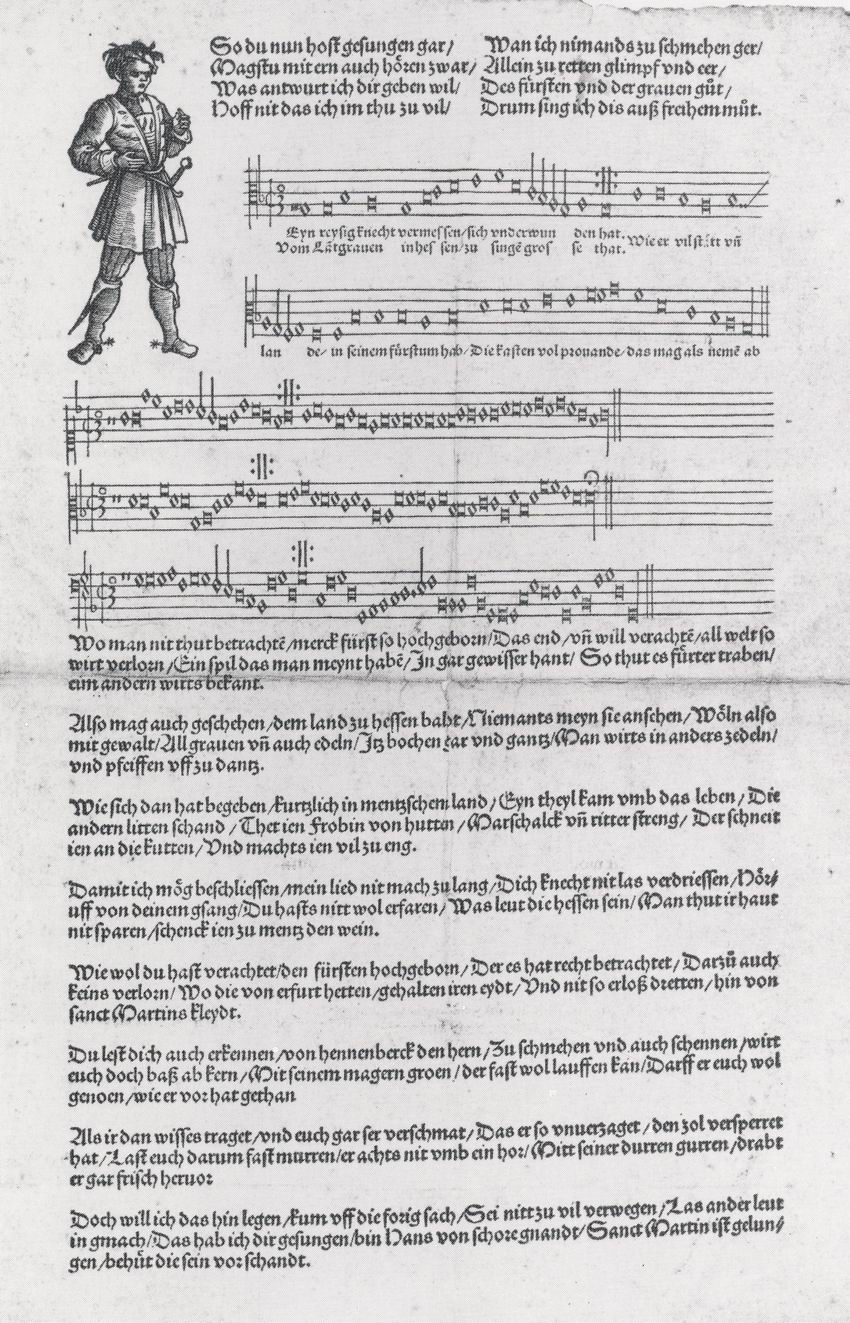 So du nun host gesungen gar/
Magstu mit ern auch hören zwar/
Was antwurt ich dir geben wil/
Hoff nit das ich im thu zu vil/
Wan ich nimands zu schmehen ger/
Allein zu retten glimpf vnd eer/
Des fürsten vnd der grauen gůt/
Drum sing ich dis auß freihem můt.
Eyn reysig knecht vermessen/sich vnderwun den hat.
Vom Lãtgrauen in hessen/zu singẽ gros se that. Wie er vil stett vñ
lan de/ in seinem fürstum hab/Die kasten vol prouande/das mag als nemẽ ab
Wo man nit thut betrachtẽ/merck fürst so hochgeborn/Das end/vñ will verachtẽ/all welt so
wirt verlorn/Ein spil das man meynt habẽ/In gar gewisser hant/ So thut es fürter traben/
eim andern wirts bekant.
Also mag auch geschehen/dem land zu hessen babt/Niemants meyn sie ansehen/Wöln also
mit gewalt/All grauen vñ auch edeln/Itz bochen gar vnd gantz/Man wirts in anders zedeln/
vnd pfeiffen vff zu dantz.
Wie sich dan hat begeben/kurtzlich in mentzschem land/Eyn theyl kam vmb das leben/Die
andern litten schand/Thet ien Frobin von hutten/Marschalck vñ ritter streng/Der schneit
ien an die kutten/Vnd machts ien vil zu eng.
Damit ich mög beschliessen/mein lied nit mach zu lang/Dich knecht nit las verdriessen/Hör⸗
uff von deinem gsang/Du hasts nitt wol erfaren/Was leut die hessen sein/Man thut ir haut
nit sparen/schenck ien zu mentz den wein.
Wie wol du hast verachtet/den fürsten hochgeborn/Der es hat recht betrachtet/Darzů auch
keins verlorn/Wo die von erfurt hetten/gehalten iren eydt/Vnd nit so erloß dretten/hin von
sanct Martins kleydt.
Du lest dich auch erkennen/von hennenberck den hern/Zu schmehen vnd auch schennen/wirt
euch doch baß ab kern/Mit seinem magern groen/der fast wol lauffen kan/Darff er euch wol
genoen/wie er vor hat gethan
Als ir dan wisses traget/vnd euch gar ser verschmat/Das er so vnuerzaget/den zol versperret
hat/Last euch darum fast murren/er achts nit vmb ein hor/Mitt seiner durren gurren/drabt
er gar frisch heruor
Doch will ich das hin legen/kum vff die forig sach/Sei nitt zu vil verwegen/Las ander leut
in gmach/Das hab ich dir gesungen/bin Hans von schore gnandt/Sanct Martin ist gelun⸗
gen/behüt die sein vor schandt.